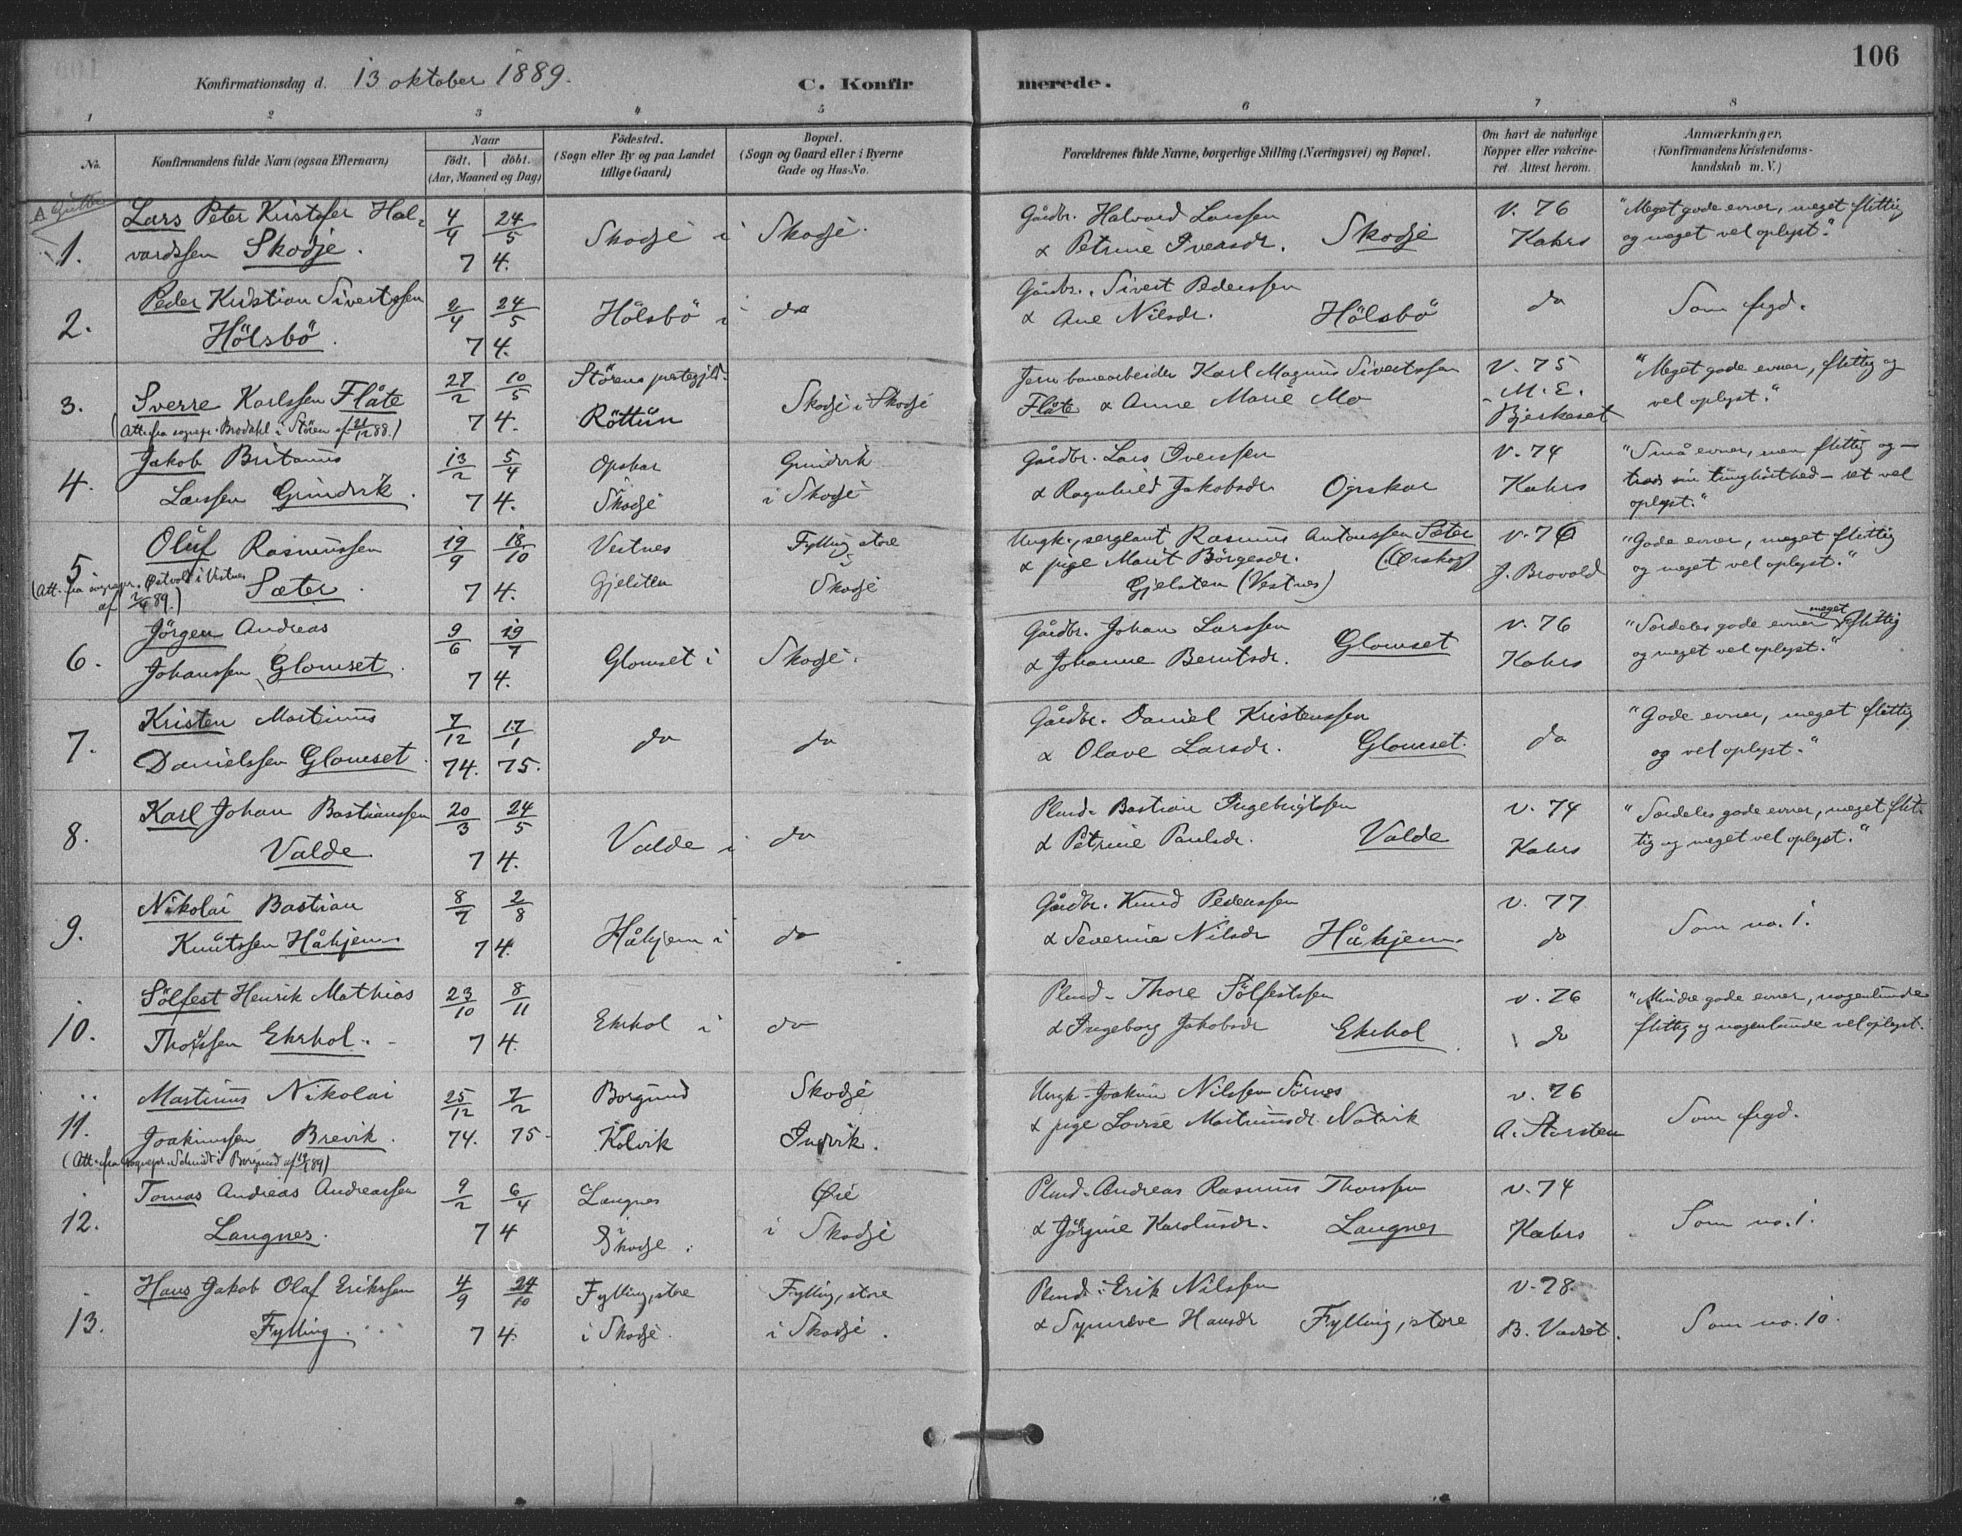 106
Konfirmationsdag d. 13 oktober 1889. C. Konfirmerede.
1 2 3 4 5 6 7 8
No. Konfirmandens fulde Navn (ogsaa Efternavn) Naar födt. döbt. (Aar, Maaned og Dag) Födested. (Sogn eller By og paa Landet tillige Gaard) Bopæl. (Sogn og Gaard eller i Byerne Gade og Hus-No. Forældrenes fulde Navne, borgerlige Stilling (Næringsvei) og Bopæl. Om havt de naturlige Kopper eller vakcineret. Attest herom. Anmærkninger. (Konfirmandens Kristendomskundskab m. V.)
A Gutter
1. Lars Peter Kristofer Hal- 4/4 24/5 Skodje i Skodje. Gårdbr. Halvard Larssen V. 76 "Meget gode evner, meget flittig
vardssen Skodje. 7 4. & Petrine Iversdr. Skodje Kahrs og meget vel oplyst."
2. Peder Kristian Sivertssen 2/4 24/5 Hölsbö i do Gårdbr. Sivert Pederssen do Som frgd.
Hölsbö. 7 4. & Ane Nilsdr. Hölsbö
3. Sverre Karlssen Flåte 27/2 10/5 Störens prestegjeld Skodje i Skodje Jernbanearbeider Karl Magnus Sivertssen V. 75 "Meget gode evner, flittig og
(Att. fra sognepr. Brodahl i Stören af 21/12 88.) 7 4. Röttum Flåte & Anne Marie Mo M. E. Bjerkeset vel oplyst."
4. Jakob Britanus 13/2 5/4 Opskar Grindvik Gårdbr. Lars Iverssen V. 74 "Små evner, men flittig og –
Larssen Grindvik. 7 4. Skodje i Skodje & Ragnhild Jakobsdr. Opskar Kahrs trods sin tunghörthed – ret vel
oplyst."
5 Oluf Rasmussen 19/9 18/10 Vestnes Fylling, store Ungk., sergeant Rasmus Antonssen Sæter V. 76 "Gode evner, meget flittig
(Att. fra sognepr. Østvold i Vestnes af 2/4 89.) Sæter. 7 4. Gjelsten i Skodje & pige Marit Börgesdr. (Ørskog) J. Brovold og meget vel oplyst."
Gjelsten (Vestnes)
6. Jörgen Andreas 9/6 19/7 Glomset i Skodje. Gårdbr. Johan Larssen Glomset V. 76 "Særdeles gode evner, meget flittig
Johanssen Glomset. 7 4. & Johanne Berntsdr. Kahrs og meget vel oplyst."
7. Kristen Martinus 7/12 17/1 do do Gårdbr. Daniel Kristenssen do "Gode evner, meget flittig
Danielssen Glomset. 74. 75. & Olave Larsdr. Glomset. og vel oplyst."
8. Karl Johan Bastianssen 20/3 24/5 Valde i do Plmd. Bastian Ingebrigtssen V. 74 "Særdeles gode evner, meget flit-
Valde. 7 4. & Petrine Paulsdr. Valde Kahrs tig og meget vel oplyst."
9. Nikolai Bastian 8/7 2/8 Håhjem i do Gårdbr. Knud Pederssen V. 77 Som no. 1.
Knutssen Håhjem. 7 4. & Severine Nilsdr Håhjem. do
10. Sölfest Henrik Mathias 23/10 8/11 Ekrhol i do Plmd. Thore Sölfestssen V. 76 "Mindre gode evner, nogenlunde
Thorssen Ekrhol. 7 4. & Ingeborg Jakobsdr Ekrhol do flittig og nogenlunde vel oplyst.
11. Martinus Nikolai 25/12 7/2 Borgund Skodje Ungk. Joakim Nilssen Sörnes V. 76 Som frgd.
Joakimssen Brevik. 74. 75. Kolvik Indvik. & pige Lovise Martinusdr.
(Att. fra sognepr. Schmidt i Borgund af 89)
12. Tomas Andreas Andreassen 9/2 6/4 Langnes Øie Plmd. Andreas Rasmus Thorssen V. 74 Som no. 1.
Langnes. 7 4 i Skodje. i Skodje & Jörgine Karolusdr. Langnes Kahrs
13. Hans Jakob Olaf Erikssen 4/9 24/10 Fylling, store Fylling, store Plmd. Erik Nilssen V. 78 Som no. 10.
Fylling. 7 4. i Skodje. i Skodje. & Synnöve Hansdr Fylling, store B. Vadset.